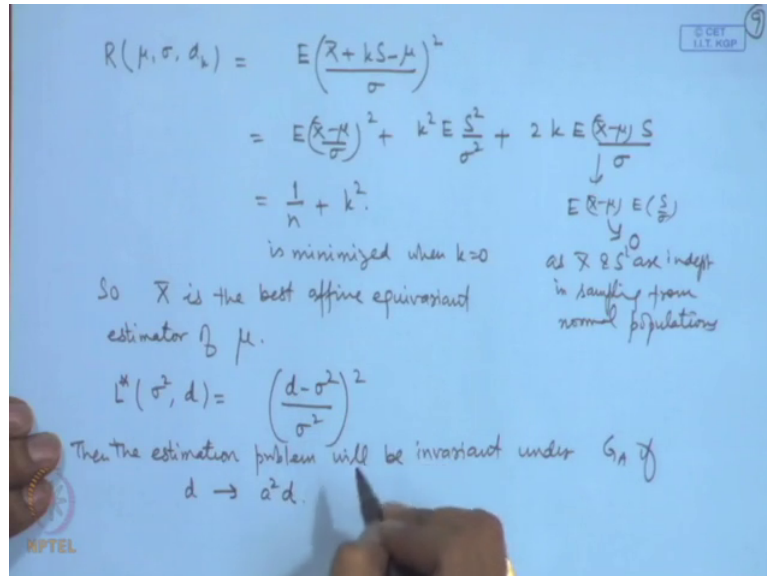 9
© CET
I.I.T. KGP
R(μ, σ, d_k) = E((X̄ + kS - μ)/σ)²
= E((X̄-μ)/σ)² + k² E S²/σ² + 2k E (X̄-μ) S/σ
↓
= 1/n + k².
E(X̄-μ) E(S/σ)
↓ 0
is minimized when k=0
as X̄ & S² are indept
in sampling from
normal populations
So X̄ is the best affine equivariant
estimator of μ.
L*(σ², d) = ((d-σ²)/σ²)²
Then the estimation problem will be invariant under G_A if
d → a²d.
NPTEL